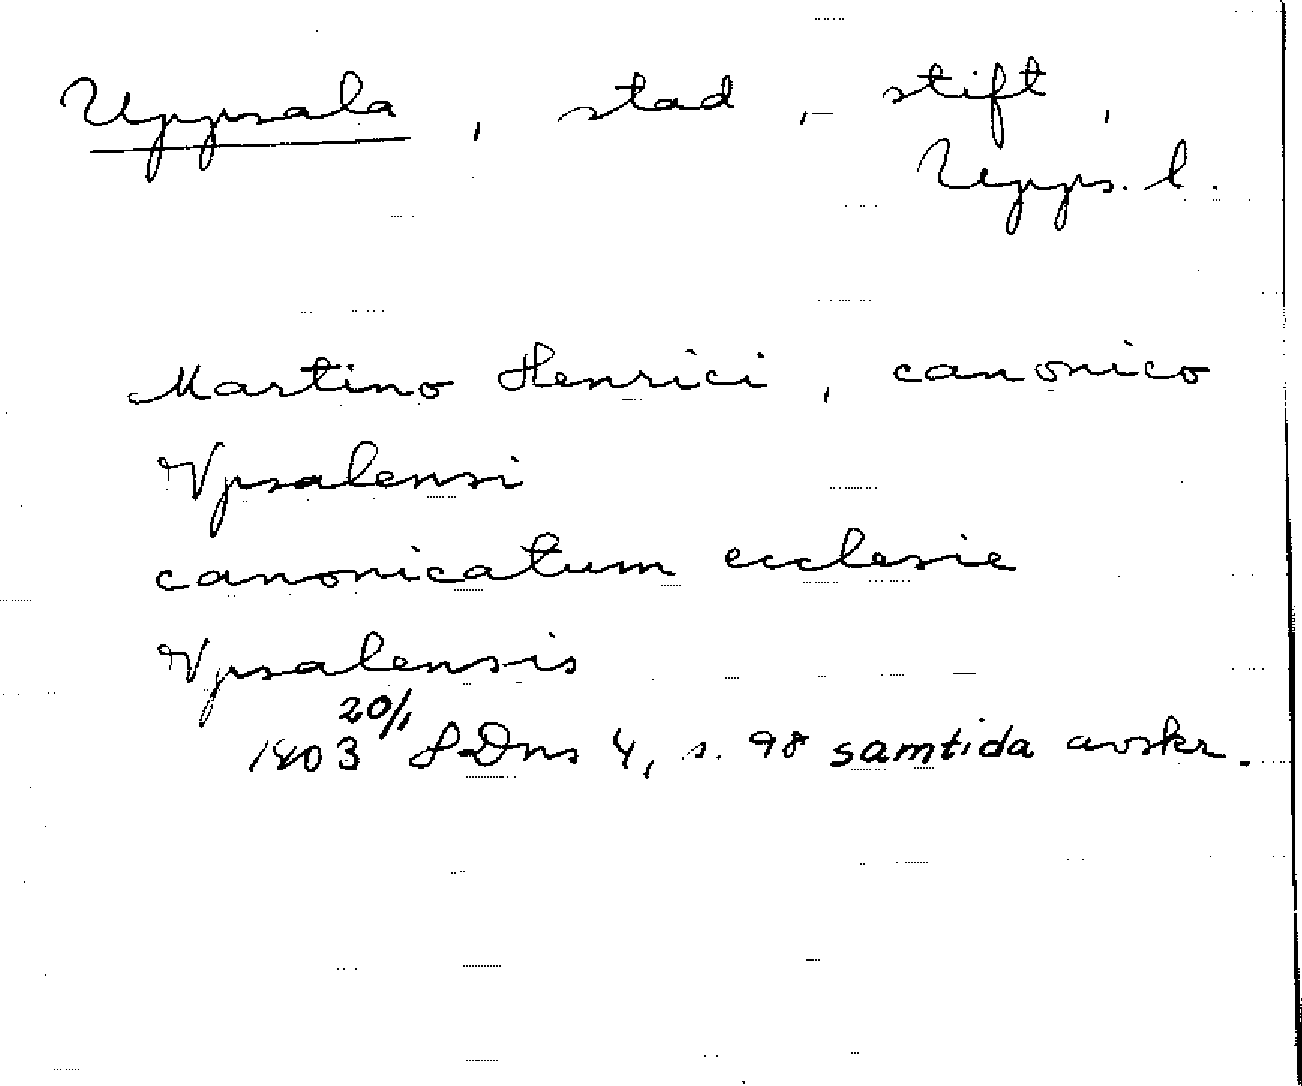 Uppsala, stad, – stift,
Upps. l.
Martino Henrici, canonico
Vpsalensi
canonicatum ecclesie
Vpsalensis
1403 20/1 SDns 4, s. 98 samtida avskr.